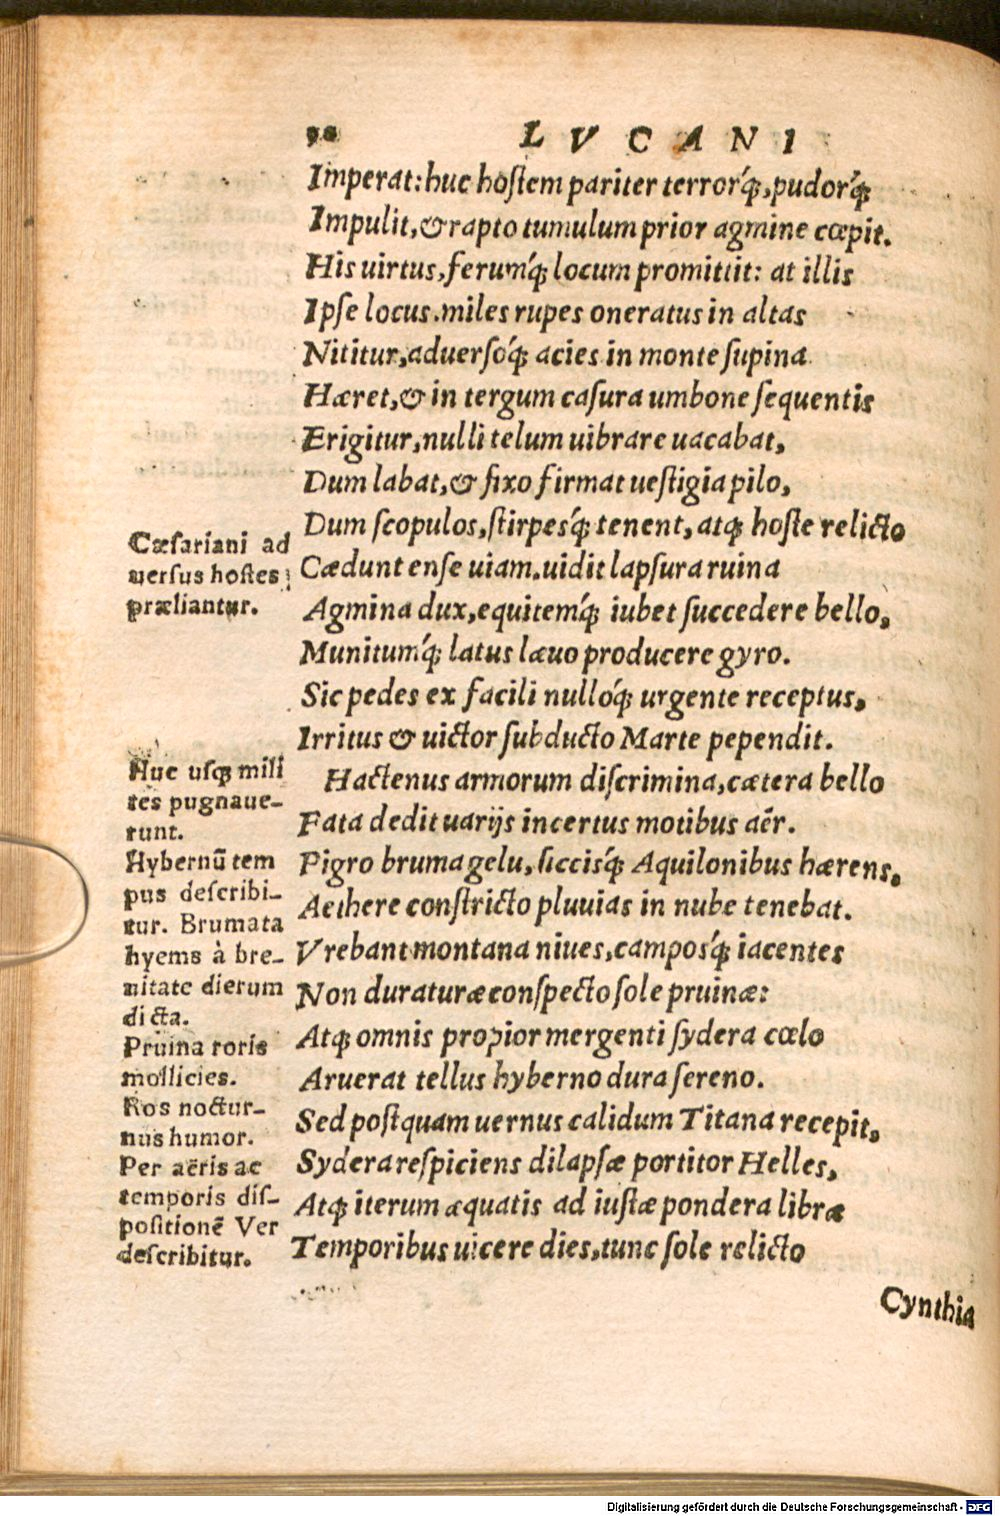 98
LVCANI
Imperat: huc hostem pariter terrorq́;, pudorq́;
Impulit, & rapto tumulum prior agmine cœpit.
His uirtus, ferumq́; locum promittit: at illis
Ipse locus. miles rupes oneratus in altas
Nititur, aduersoq́; acies in monte supina
Hæret, & in tergum casura umbone sequentis
Erigitur, nulli telum uibrare uacabat,
Dum labat, & fixo firmat uestigia pilo,
Dum scopulos, stirpesq́; tenent, atq; hoste relicto
Cædunt ense uiam. uidit lapsura ruina
Agmina dux, equitemq́; iubet succedere bello,
Munitumq́; latus læuo producere gyro.
Sic pedes ex facili nulloq́; urgente receptus,
Irritus & uictor subducto Marte pependit.
Hactenus armorum discrimina, cætera bello
Fata dedit uarijs incertus motibus aër.
Pigro bruma gelu, siccisq́; Aquilonibus hærens,
Aethere constricto pluuias in nube tenebat.
Vrebant montana niues, camposq́; iacentes
Non duraturæ conspecto sole pruinæ:
Atq; omnis propior mergenti sydera cœlo
Aruerat tellus hyberno dura sereno.
Sed postquam uernus calidum Titana recepit,
Sydera respiciens dilapsæ portitor Helles,
Atq; iterum æquatis ad iustæ pondera libræ
Temporibus uicere dies, tunc sole relicto
Cynthia
Cæsariani ad
uersus hostes
præliantur.
Huc usq; mili
tes pugnaue-
runt.
Hybernū tem
pus describi-
tur. Brumata
hyems à bre-
uitate dierum
dicta.
Pruina roris
mollicies.
Ros noctur-
nus humor.
Per aëris ac
temporis dis-
positionē Ver
describitur.
Digitalisierung gefördert durch die Deutsche Forschungsgemeinschaft - DFG